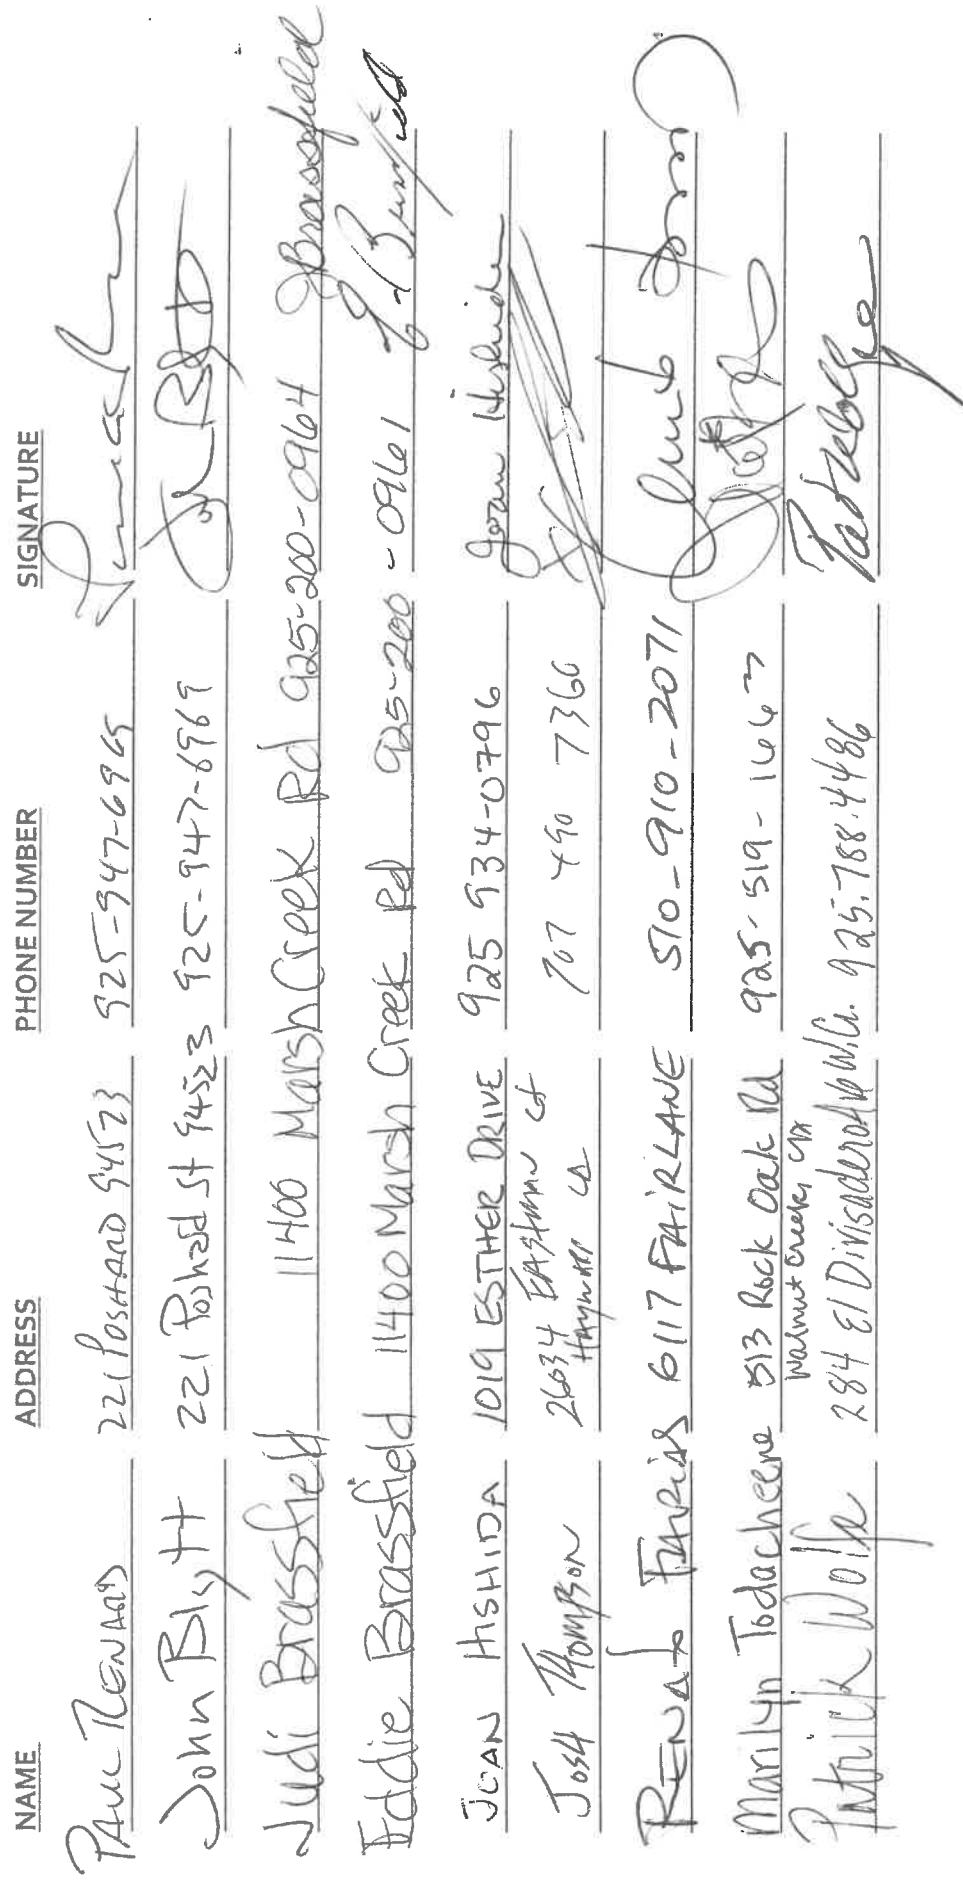 NAME ADDRESS PHONE NUMBER SIGNATURE
PAUL RENARD 221 POSHARD 94523 925-947-6969
John Blytt 221 Poshard St 94523 925-947-6969
Judi Brassfield 11400 Marsh Creek Rd 925-200-0964 JBrassfield
Eddie Brassfield 11400 Marsh Creek Rd 925-200-0961
JOAN HISHIDA 1019 ESTHER DRIVE 925 934-0796 Joan Hishida
JOSH THOMPSON 26034 EASTMAN Ct 707 490 7366
HAYWARD CA
RENATO 6117 FAIRLANE 510-910-2071
Marilyn Todacheene 513 Rock Oak Rd 925-519-1663
Walnut Creek, CA
Patrick Wolfe 284 El Divisadero Av W.C. 925.788.4486